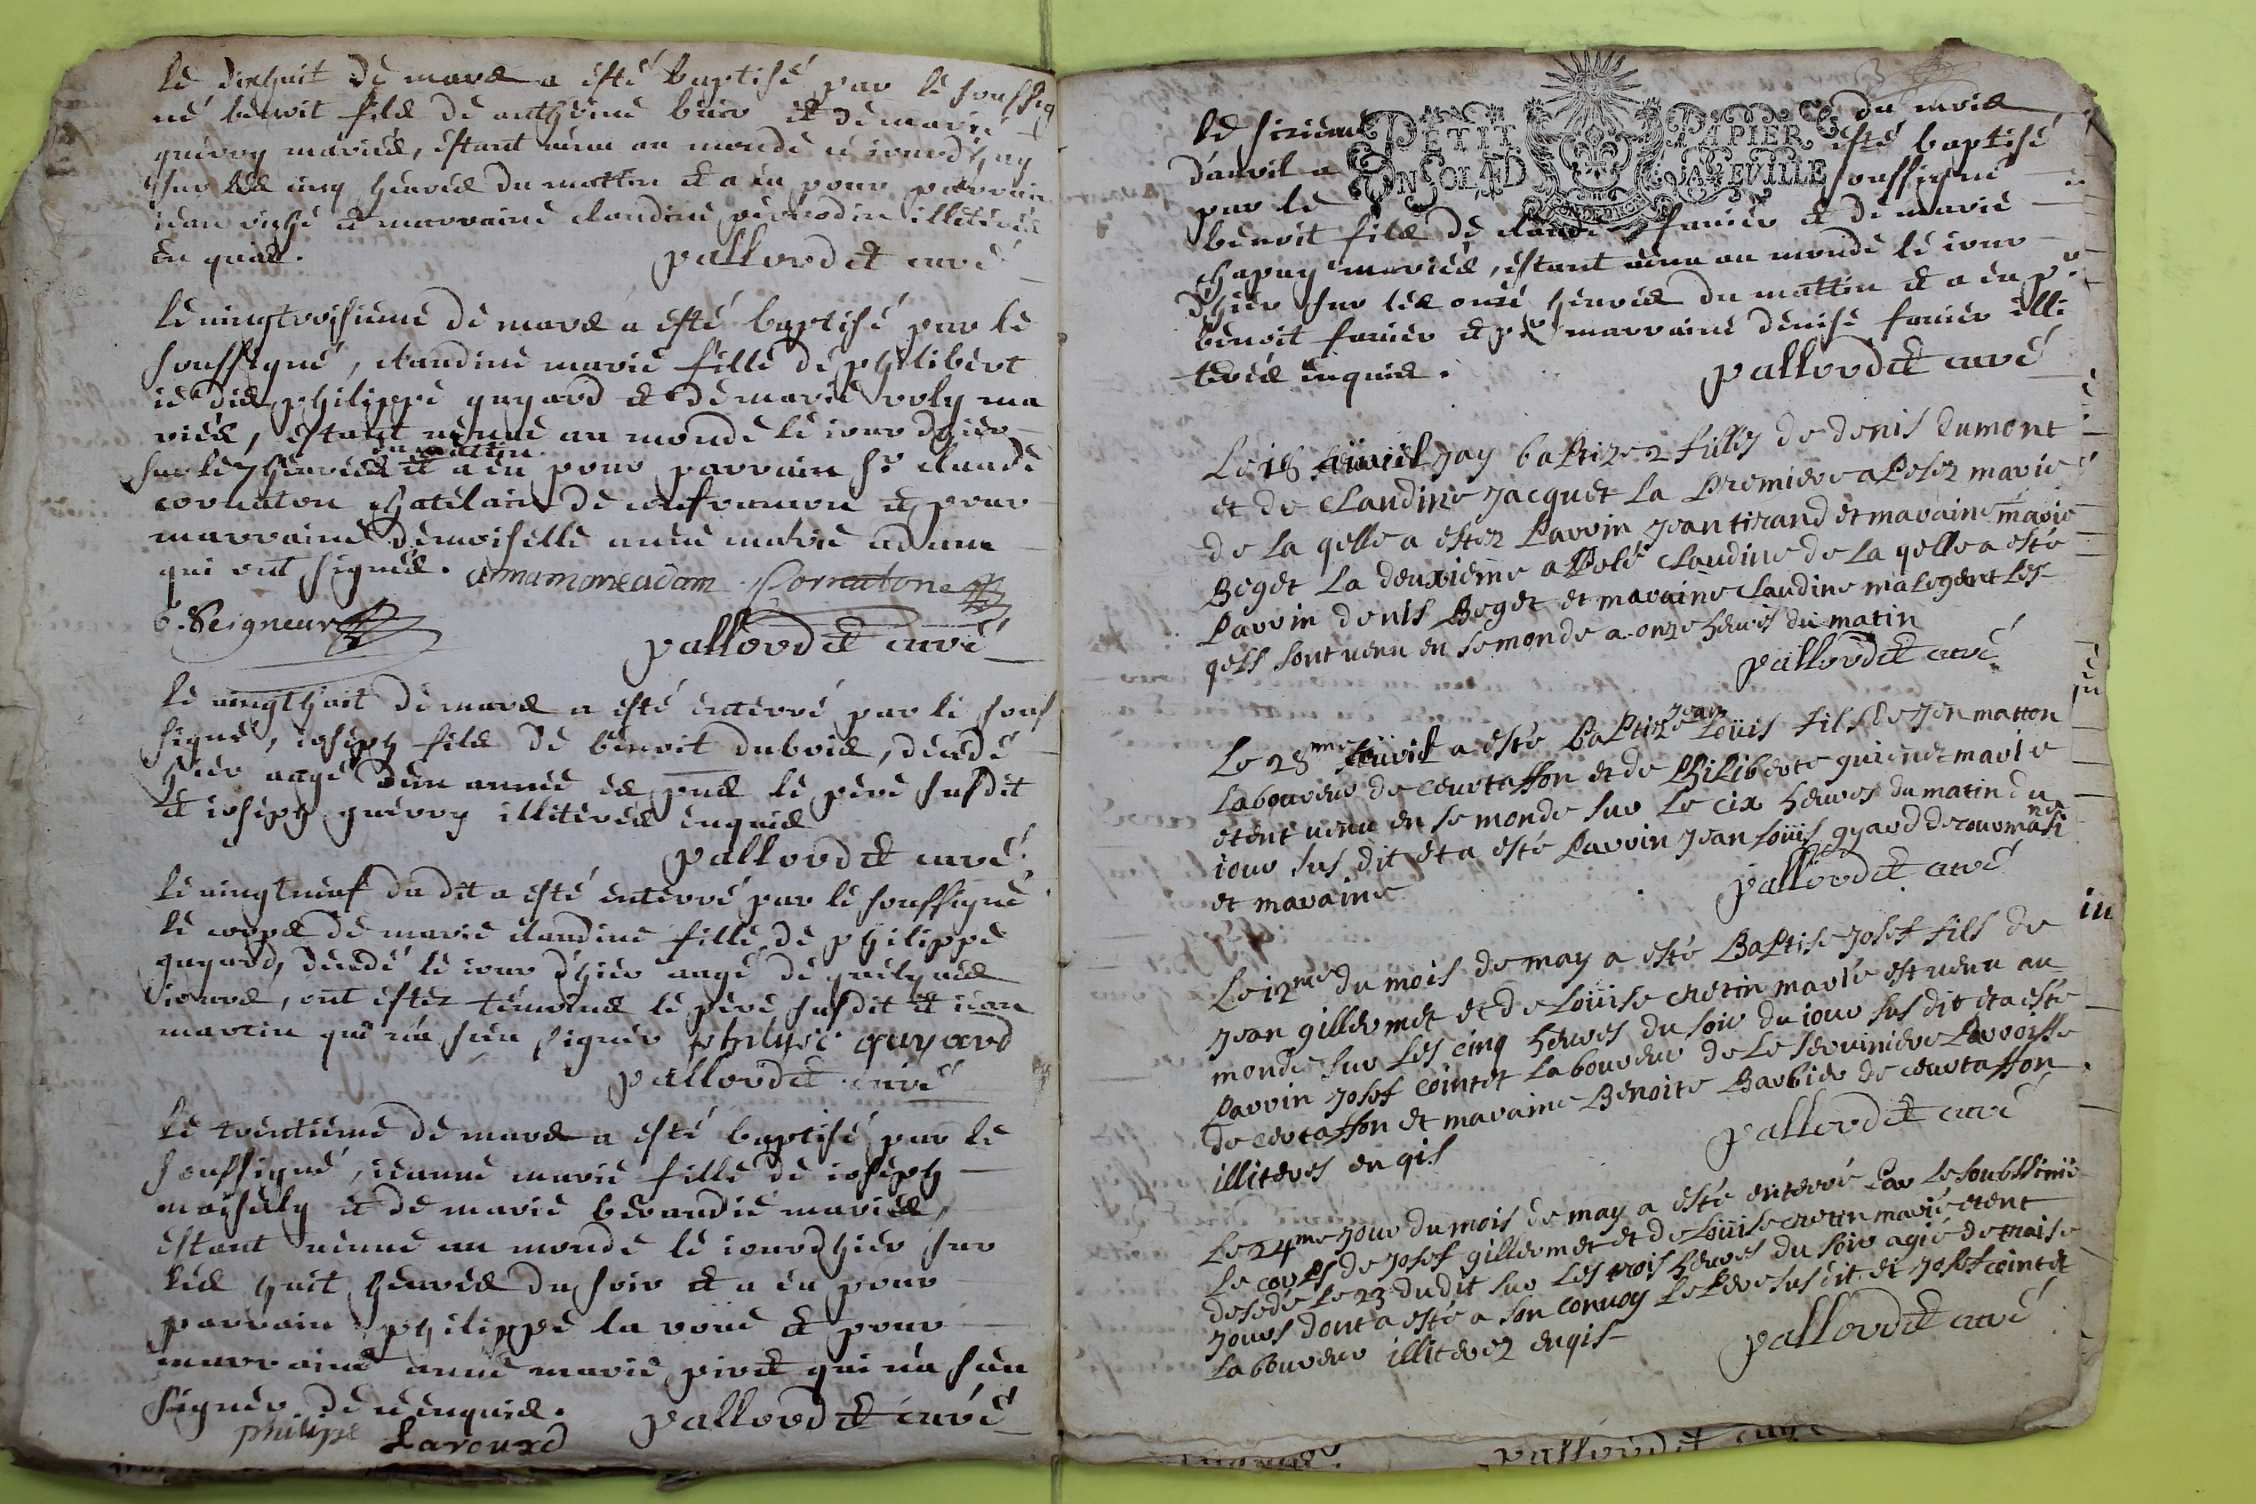 le dixhuit de mars a esté baptisé par le soussig
né benoit fils de anthoine buer et de marie
guerry mariés, estant venu au monde ce iourdhuy
sur les cinq heures du mattin et a eu pour parrain
iean viché et marraine claudine illiterés
enquis.
pallordet curé
le vingtroisieme de mars a esté baptisé par le
soussigné, claudine marie fille de philibert
ie dis philippe guyard et de marie roly ma
riés, estant venue au monde le iour dhier
du mattin
sur les 7 heures et a eu pour parrain sr claude
cornaton chatelain de et pour
marraine demoiselle anne marie adam
qui ont signés. annamarieadam Cornaton
C. Seigneur
pallordet curé
le vingthuit de mars a esté enterré par le sous
signé, ioseph fils de benoit dubois, décédé
hier aagé dun année es pns le père susdit
et ioseph guerry illiterés enquis
pallordet curé
le vingtneuf du dit a esté enterré par le soussigné
le corps de marie claudine fille de philippe
guyard, décédé le iour dhier aagé de quelques
iours, ont estez témoins le père susdit et iean
martin qui na sceu signer philipe guyard
pallordet curé
le trentieme de mars a esté baptisé par le
soussigné, ieanne marie fille de ioseph
et de marie berandié mariés,
estant venue au monde le iourdhier sur
les huit heures du soir et a eu pour
parrain philippe la roüe et pour
marraine anne marie piret qui na sceu
signer de ce enquis.
pallordet curé
philipe Laroux
PETIT PAPIER
UN SOL LA FEUILLE
le sixieme du mois
davril a esté baptisé
par le soussigné
benoit fils de claude fanier et de marie
chapuy mariés, estant venu au monde le iour
dhier sur les onze heures du mattin et a eu pr
benoit fanier et pr marraine denise fanier illi
terés enquis.
pallordet curé
Le 18 avril jay baptizer 2 filles de denis dumont
et de claudine Jacquet la premiere apelez marie
de la qelle a estez parrin jean tirand et maraine marie
Boget la deuxieme apelé claudine de la qelle a esté
parrin denis Boget et maraine claudine les
qels sont venu en se monde a onze heures du matin
pallordet curé
jean
Le 28me avril a esté baptize Loüis fils de jen matton
laboureur de courtaffon et de Philiberte guienet marie
etent venu en se monde sur le cix heures du matin du
iour sus dit et a esté parrin jean Loüis gyard de
et maraine
pallordet curé
Le 12me du mois de may a esté Baptise josef fils de
jean gillermet et de Loüise cretin marié est venu au
monde sur les cinq heures du soir du iour sus dit et a esté
parrin josef cointet laboureur de le parroisse
de cortaffon et maraine Benoite Barbier de courtaffon
illiteres en qis
pallordet curé
Le 24me jour du mois de may a esté enterré par le
le corps de josef gillermet et de Loüise cretin marié etent
desedé le 23 du dit sur les trois heures du soir agié de traise
jours dont a esté a son convoy le pere sus dit et josef cointet
laboureur illiterez en qis
pallordet curé
pallordet curé